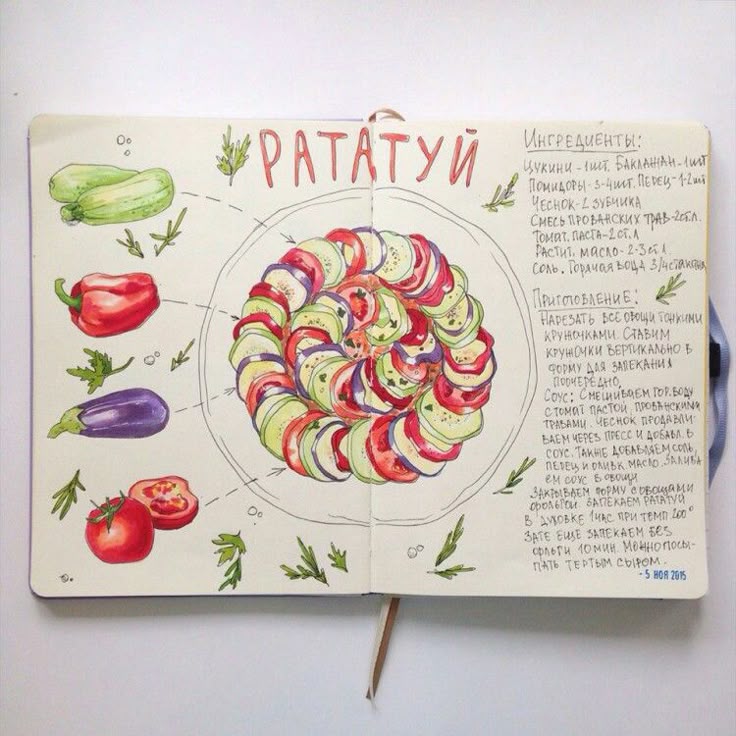 РАТАТУЙ
ИНГРЕДИЕНТЫ:
ЦУКИНИ - 1ШТ. БАКЛАЖАН - 1ШТ
ПОМИДОРЫ - 3-4ШТ. ПЕРЕЦ - 1-2ШТ
ЧЕСНОК - 2 ЗУБЧИКА
СМЕСЬ ПРОВАНСКИХ ТРАВ - 2СТ.Л.
ТОМАТ. ПАСТА - 2СТ.Л
РАСТИТ. МАСЛО - 2-3СТ.Л
СОЛЬ. ГОРЯЧАЯ ВОДА 3/4 СТАКАНА
ПРИГОТОВЛЕНИЕ:
НАРЕЗАТЬ ВСЕ ОВОЩИ ТОНКИМИ
КРУЖОЧКАМИ. СТАВИМ
КРУЖОЧКИ ВЕРТИКАЛЬНО В
ФОРМУ ДЛЯ ЗАПЕКАНИЯ
ПООЧЕРЕДНО.
СОУС: СМЕШИВАЕМ ГОР. ВОДУ
С ТОМАТ ПАСТОЙ, ПРОВАНСКИМИ
ТРАВАМИ. ЧЕСНОК ПРОДАВЛИ-
ВАЕМ ЧЕРЕЗ ПРЕСС И ДОБАВЛ. В
СОУС. ТАКЖЕ ДОБАВЛЯЕМ СОЛЬ,
ПЕРЕЦ И ОЛИВК. МАСЛО. ЗАЛИВА
ЕМ СОУС В ОВОЩИ
ЗАКРЫВАЕМ ФОРМУ С ОВОЩАМИ
ФОЛЬГОЙ. ЗАПЕКАЕМ РАТАТУЙ
В ДУХОВКЕ 1 ЧАС ПРИ ТЕМП. 200°
ЗАТЕ ЕЩЕ ЗАПЕКАЕМ БЕЗ
ФОЛЬГИ 10 МИН. МОЖНО ПОСЫ-
ПАТЬ ТЕРТЫМ СЫРОМ.
- 5 НОЯ 2015